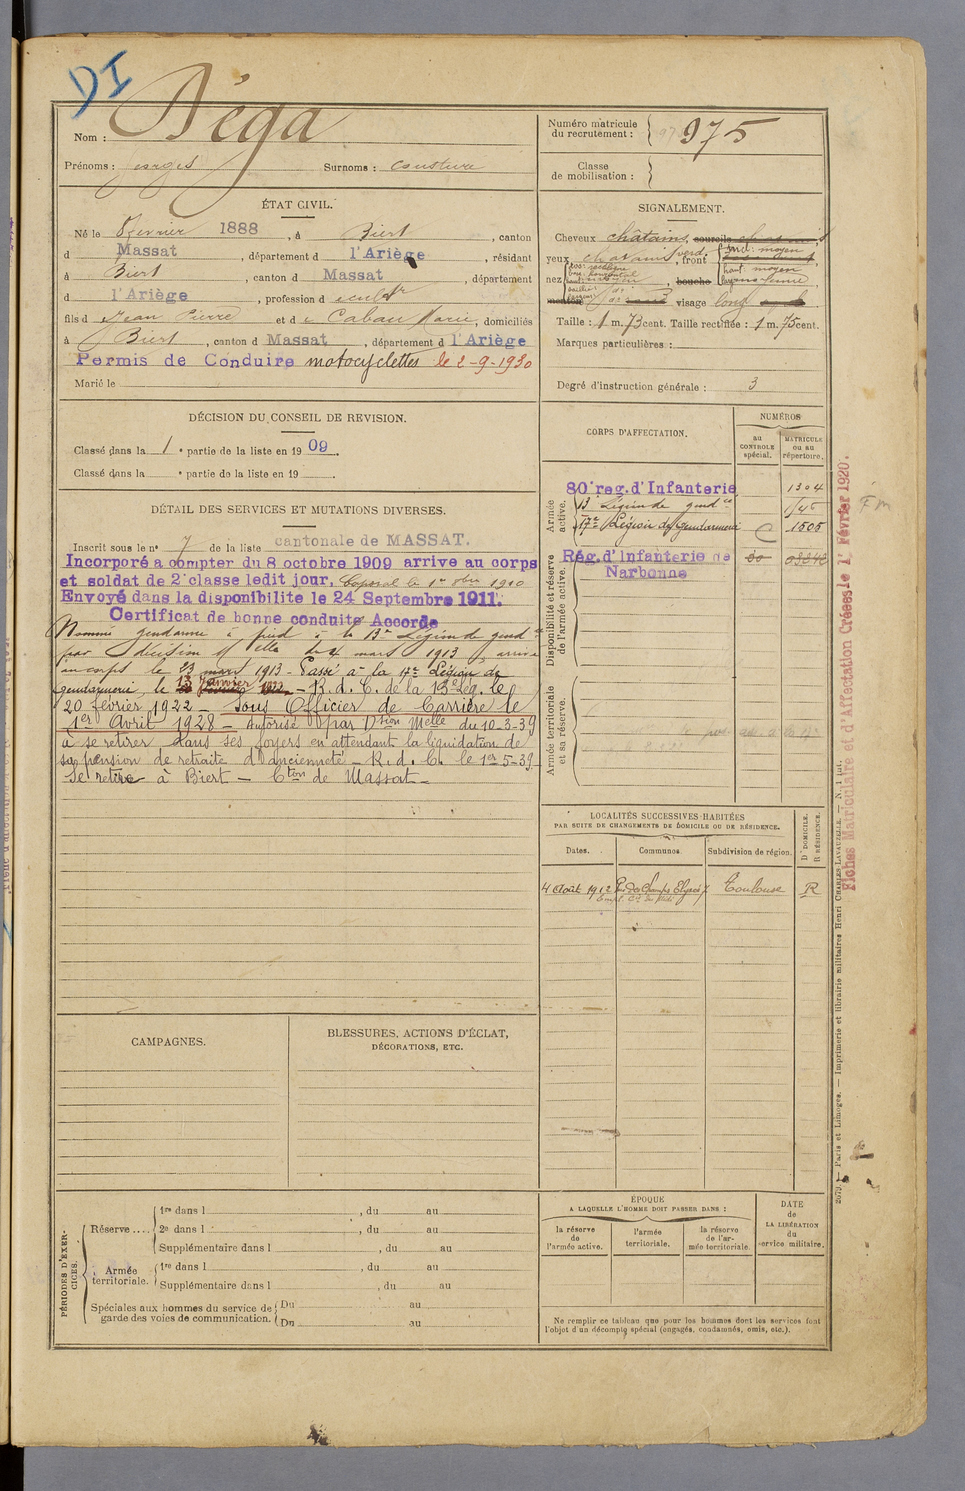 DI
Nom : Déga
Prénoms : Georges Surnoms : Cousture
Numéro matricule du recrutement : 975
Classe de mobilisation :
ÉTAT CIVIL.
Né le 1888, à Biert, canton
d Massat, département d l'Ariège, résidant
à Biert, canton d Massat, département
d l'Ariège, profession d
fils d Jean Pierre et d e Cabau Marie, domiciliés
à Biert, canton d Massat, département d l'Ariège
Permis de Conduire motocyclettes le 2-9-1930
Marié le
SIGNALEMENT.
Cheveux châtains, sourcils
yeux chatains verd., front
incl: moyen
haut: moyen
nez , bouche
menton visage long
Taille : 1 m. 73 cent. Taille rectifiée : 1 m. 75 cent.
Marques particulières :
Degré d'instruction générale : 3
DÉCISION DU CONSEIL DE REVISION.
Classé dans la 1e partie de la liste en 1909.
Classé dans la e partie de la liste en 19
DÉTAIL DES SERVICES ET MUTATIONS DIVERSES.
Inscrit sous le n° 7 de la liste cantonale de MASSAT.
Incorporé a compter du 8 octobre 1909 arrive au corps
et soldat de 2e classe ledit jour, Caporal le 1er 8bre 1910
Envoyé dans la disponibilite le 24 Septembre 1911.
Certificat de bonne conduite Accorde
Nommé gendarme à pied à la 13e Légion de gend
par décision Mlle du 4 mars 1913, arrivé
au corps le 23 mars 1913 - Passé à la 17e Légion de
gendarmerie, le 13 Janvier 1922 - R.d.C. de la 13e Lég. le
20 février 1922 - Sous Officier de Carrière le
1er Avril 1928 - Autorisé par Dsion Melle du 10-3-39
à se retirer dans ses foyers en attendant la liquidation de
sa pension de retraite d'ancienneté - R.d.C. le 1er-5-39
Se retire à Biert - Cton de Massat -
CORPS D'AFFECTATION.
NUMÉROS
au CONTROLE spécial.
MATRICULE ou au répertoire.
Armée active.
80e reg. d'Infanterie 1304
13e Légion de gend
17e Légion de Gendarmerie 1505
Disponibilité et réserve de l'armée active.
Rég. d'Infanterie de
Narbonne
Armée territoriale et sa réserve.
LOCALITÉS SUCCESSIVES HABITÉES
PAR SUITE DE CHANGEMENTS DE DOMICILE OU DE RÉSIDENCE.
Dates. Communes. Subdivision de région. D. DOMICILE. R. RÉSIDENCE.
4 Août 1912 Champs Elysées 7 Toulouse R
CAMPAGNES.
BLESSURES, ACTIONS D'ÉCLAT,
DÉCORATIONS, ETC.
PÉRIODES D'EXERCICES.
Réserve ....
1re dans l , du au
2e dans l , du au
Supplémentaire dans l , du au
Armée territoriale.
1re dans l , du au
Supplémentaire dans l , du au
Spéciales aux hommes du service de garde des voies de communication.
Du au
Du au
ÉPOQUE
A LAQUELLE L'HOMME DOIT PASSER DANS :
la réserve de l'armée active.
l'armée territoriale.
la réserve de l'armée territoriale.
DATE de LA LIBÉRATION du service militaire.
Ne remplir ce tableau que pour les hommes dont les services font
l'objet d'un décompte spécial (engagés, condamnés, omis, etc.).
Fiches Matriculaire et d'Affectation Créées le 1er Février 1920.
Paris et Limoges. — Imprimerie et librairie militaires Henri CHARLES-LAVAUZELLE. — N. 1 bis.